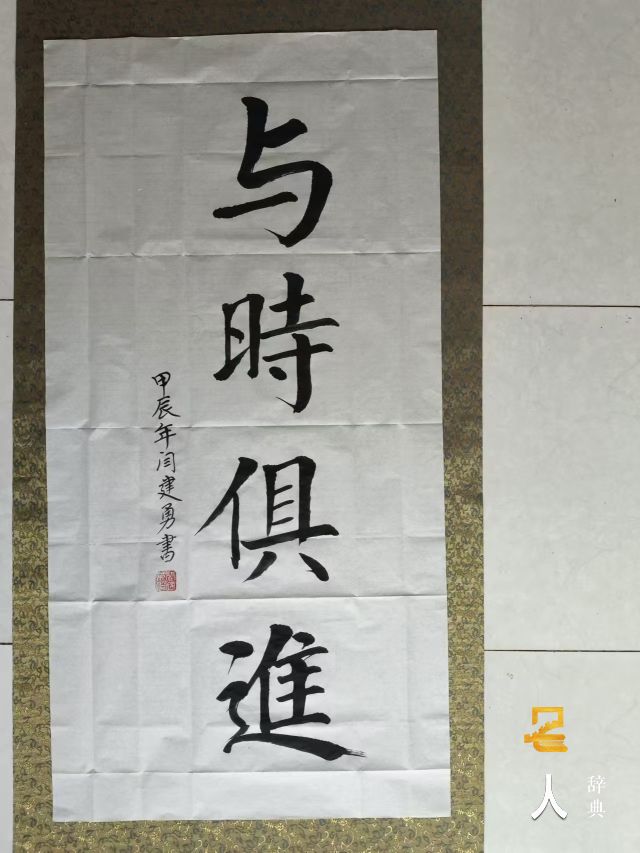 与時俱進
甲辰年闫建勇書
人
辞典